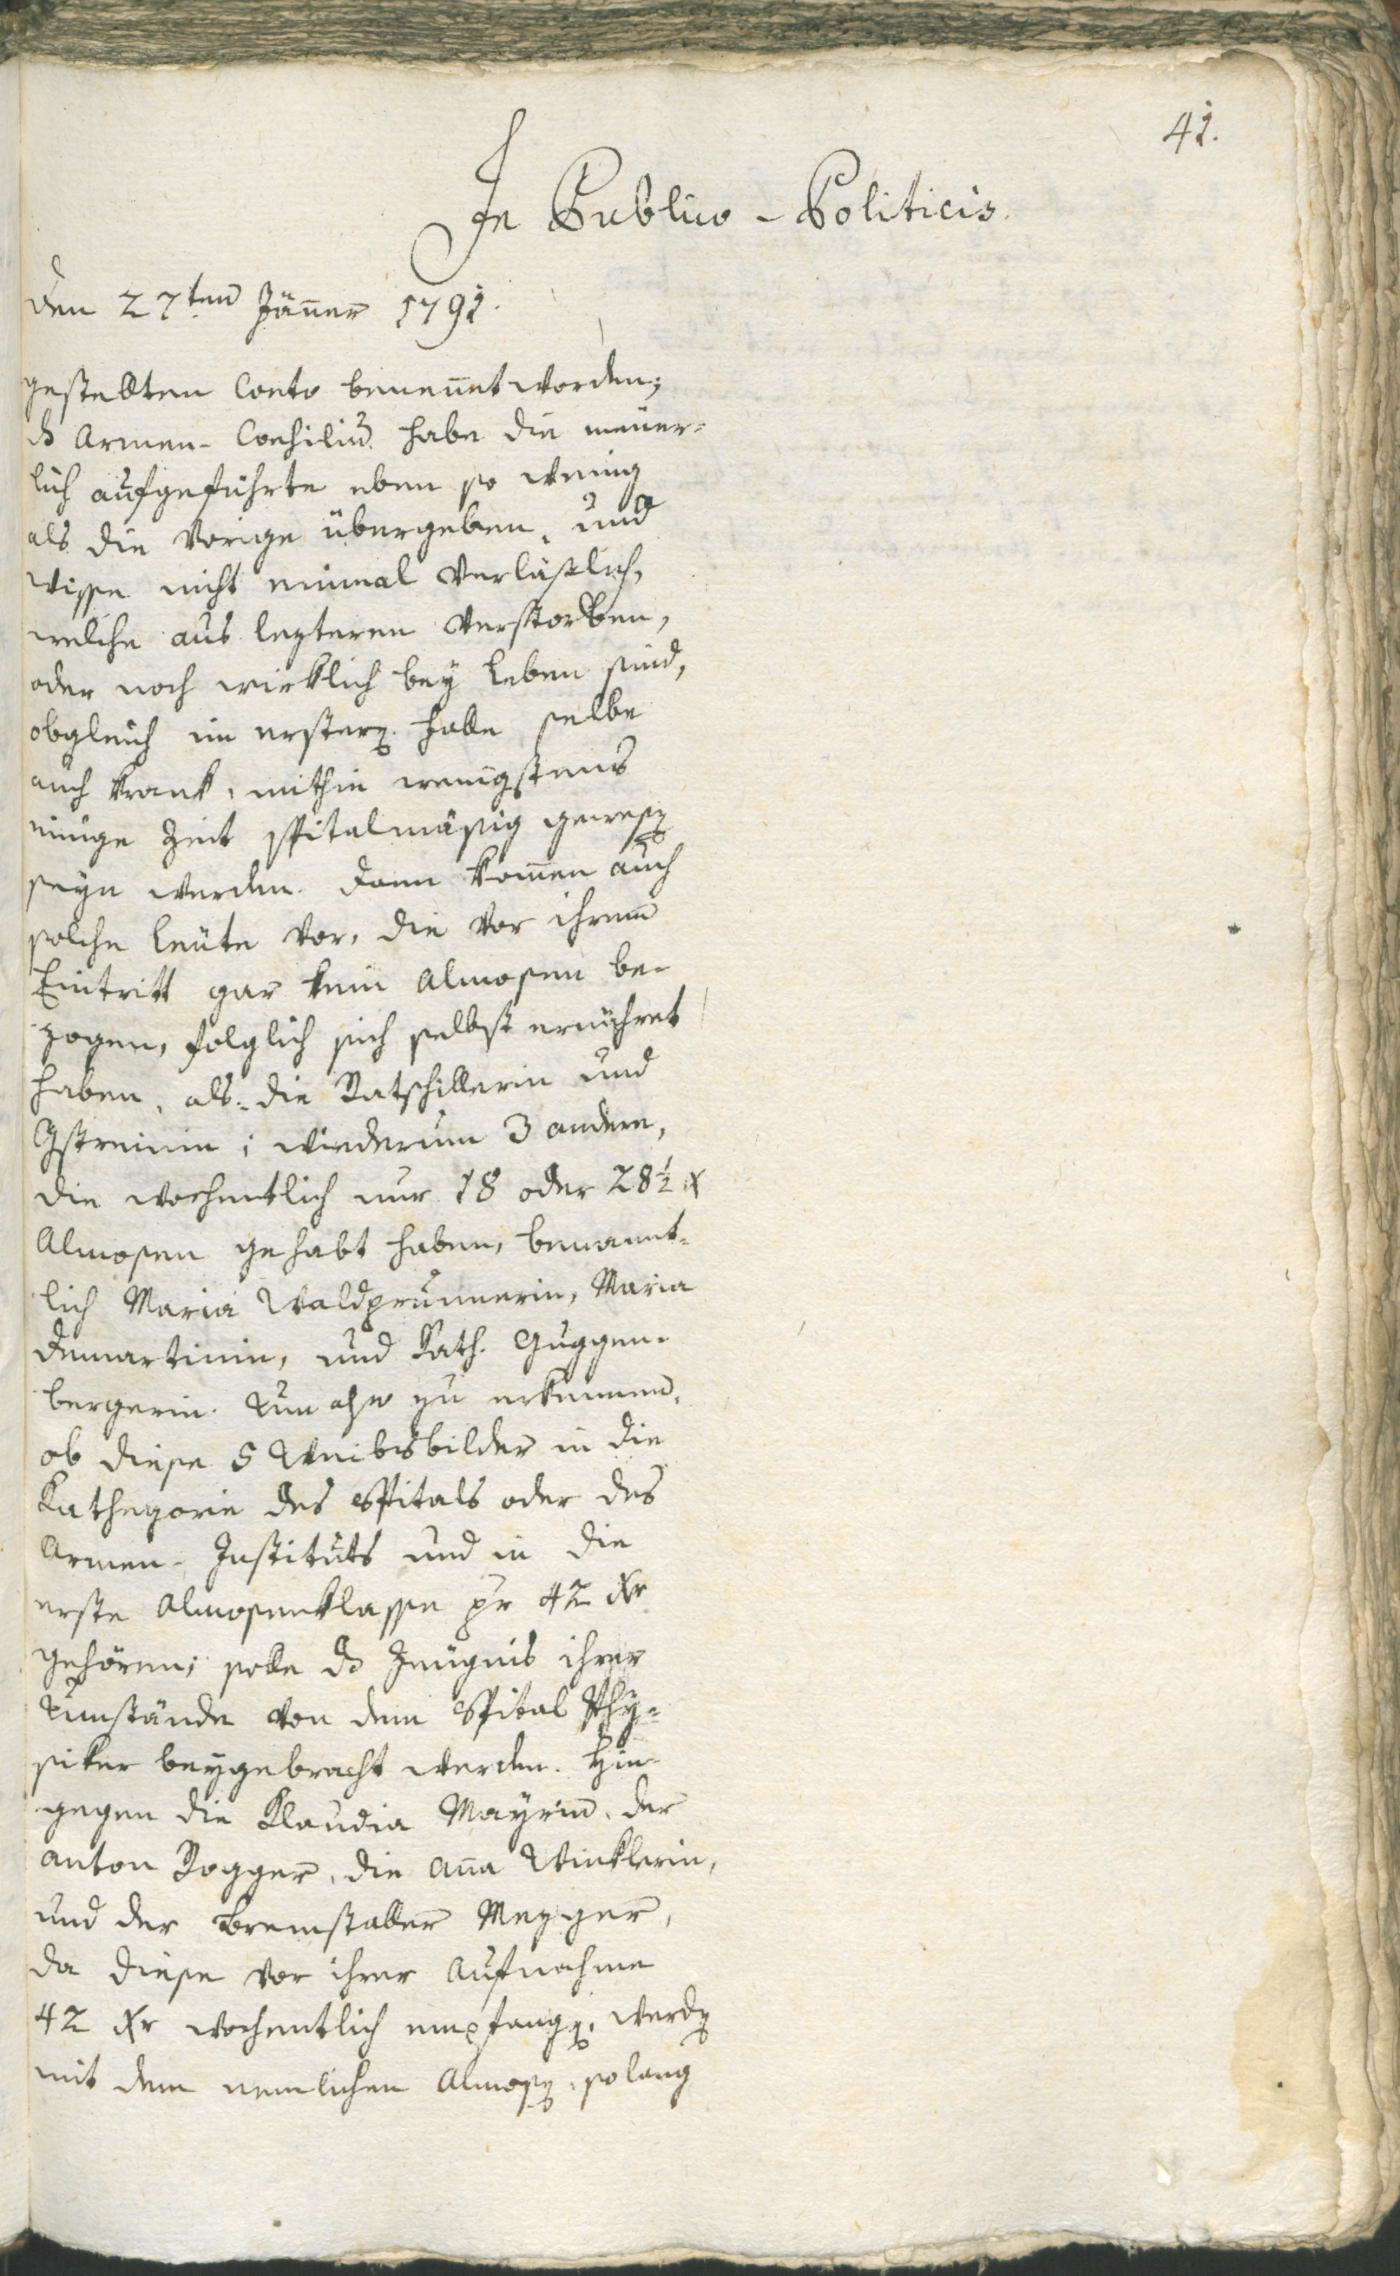 41.
In Publico-Politicis.
den 27ten Jänner 1791.
gestellten Conto benennet worden;
ds Armen-Consiliu habe die neuer-
lich aufgeführte eben so wenig
als die vorige übergeben, und
wisse nicht einmal verläßlich,
welche aus lezteren verstorben,
oder noch wirklich bey Leben sind,
obgleich im ersten falle selbe
auch krank, mithin wenigstens
einige Zeit spitalmäsig gewesen
seyn werden. Dann komen auch
solche Leute vor, die vor ihrem
Eintritt gar kein Almosen be-
zogen, folglich sich selbst ernähret
haben, als: die Ratschillerin und
Gstreinin; wiederum 3 andere,
die wochentlich nur 18 oder 28½ x
Almosen gehabt haben, benannt-
lich Maria Waldprunnerin, Maria
Demartinin, und Kath. Guggen-
bergerin. Um also zu erkennen,
ob diese 5 Weibsbilder in die
Kathegorie des Spitals oder des
Armen-Instituts und in die
erste Almosenklasse pr 42 Xr
gehören; solle ds Zeugnis ihrer
Umstände von dem Spital Phy-
siker beygebracht werden. Hin-
gegen die Klaudia Mayrin, der
Anton Rogger, die Anna Winklerin,
und der Bremstaller Mezger,
da diese vor ihrer Aufnahme
42 Xr wochentlich empfangen, werden
mit dem nemlichen Almosen, solang